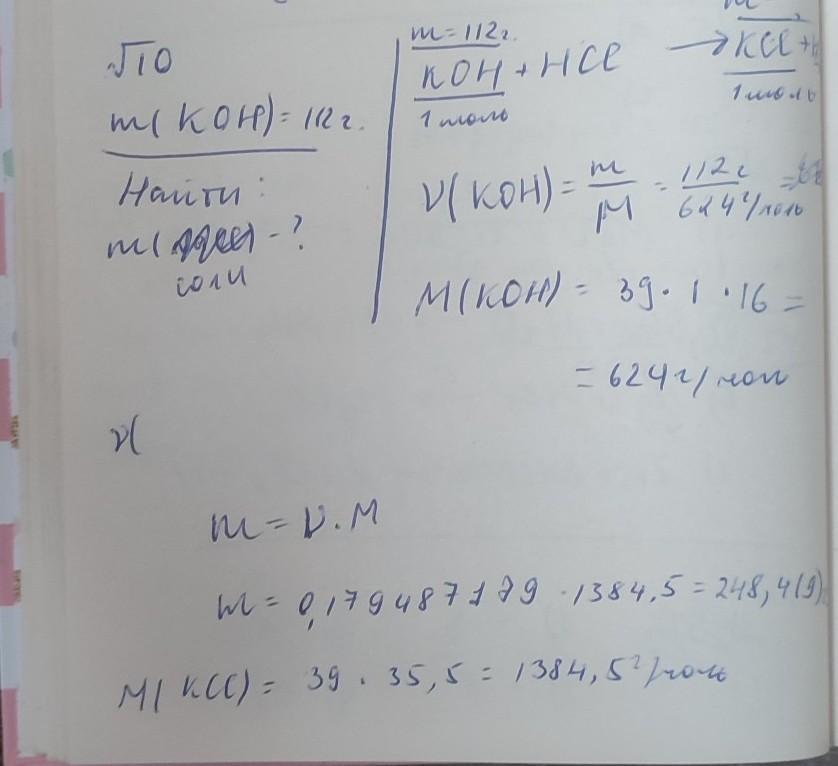 √10
m(KOH) = 112 г.
Найти:
m( соли) - ?
m = 112 г.
KOH + HCl → KCl +
1 моль 1 моль
ν(KOH) = m/M = 112 г/624 г/моль =
M(KOH) = 39 · 1 · 16 =
= 624 г/мол
ν(
m = ν . M
m = 0,179487179 · 1384,5 = 248,4(9)
M( KCl) = 39 . 35,5 = 1384,5 г/моль